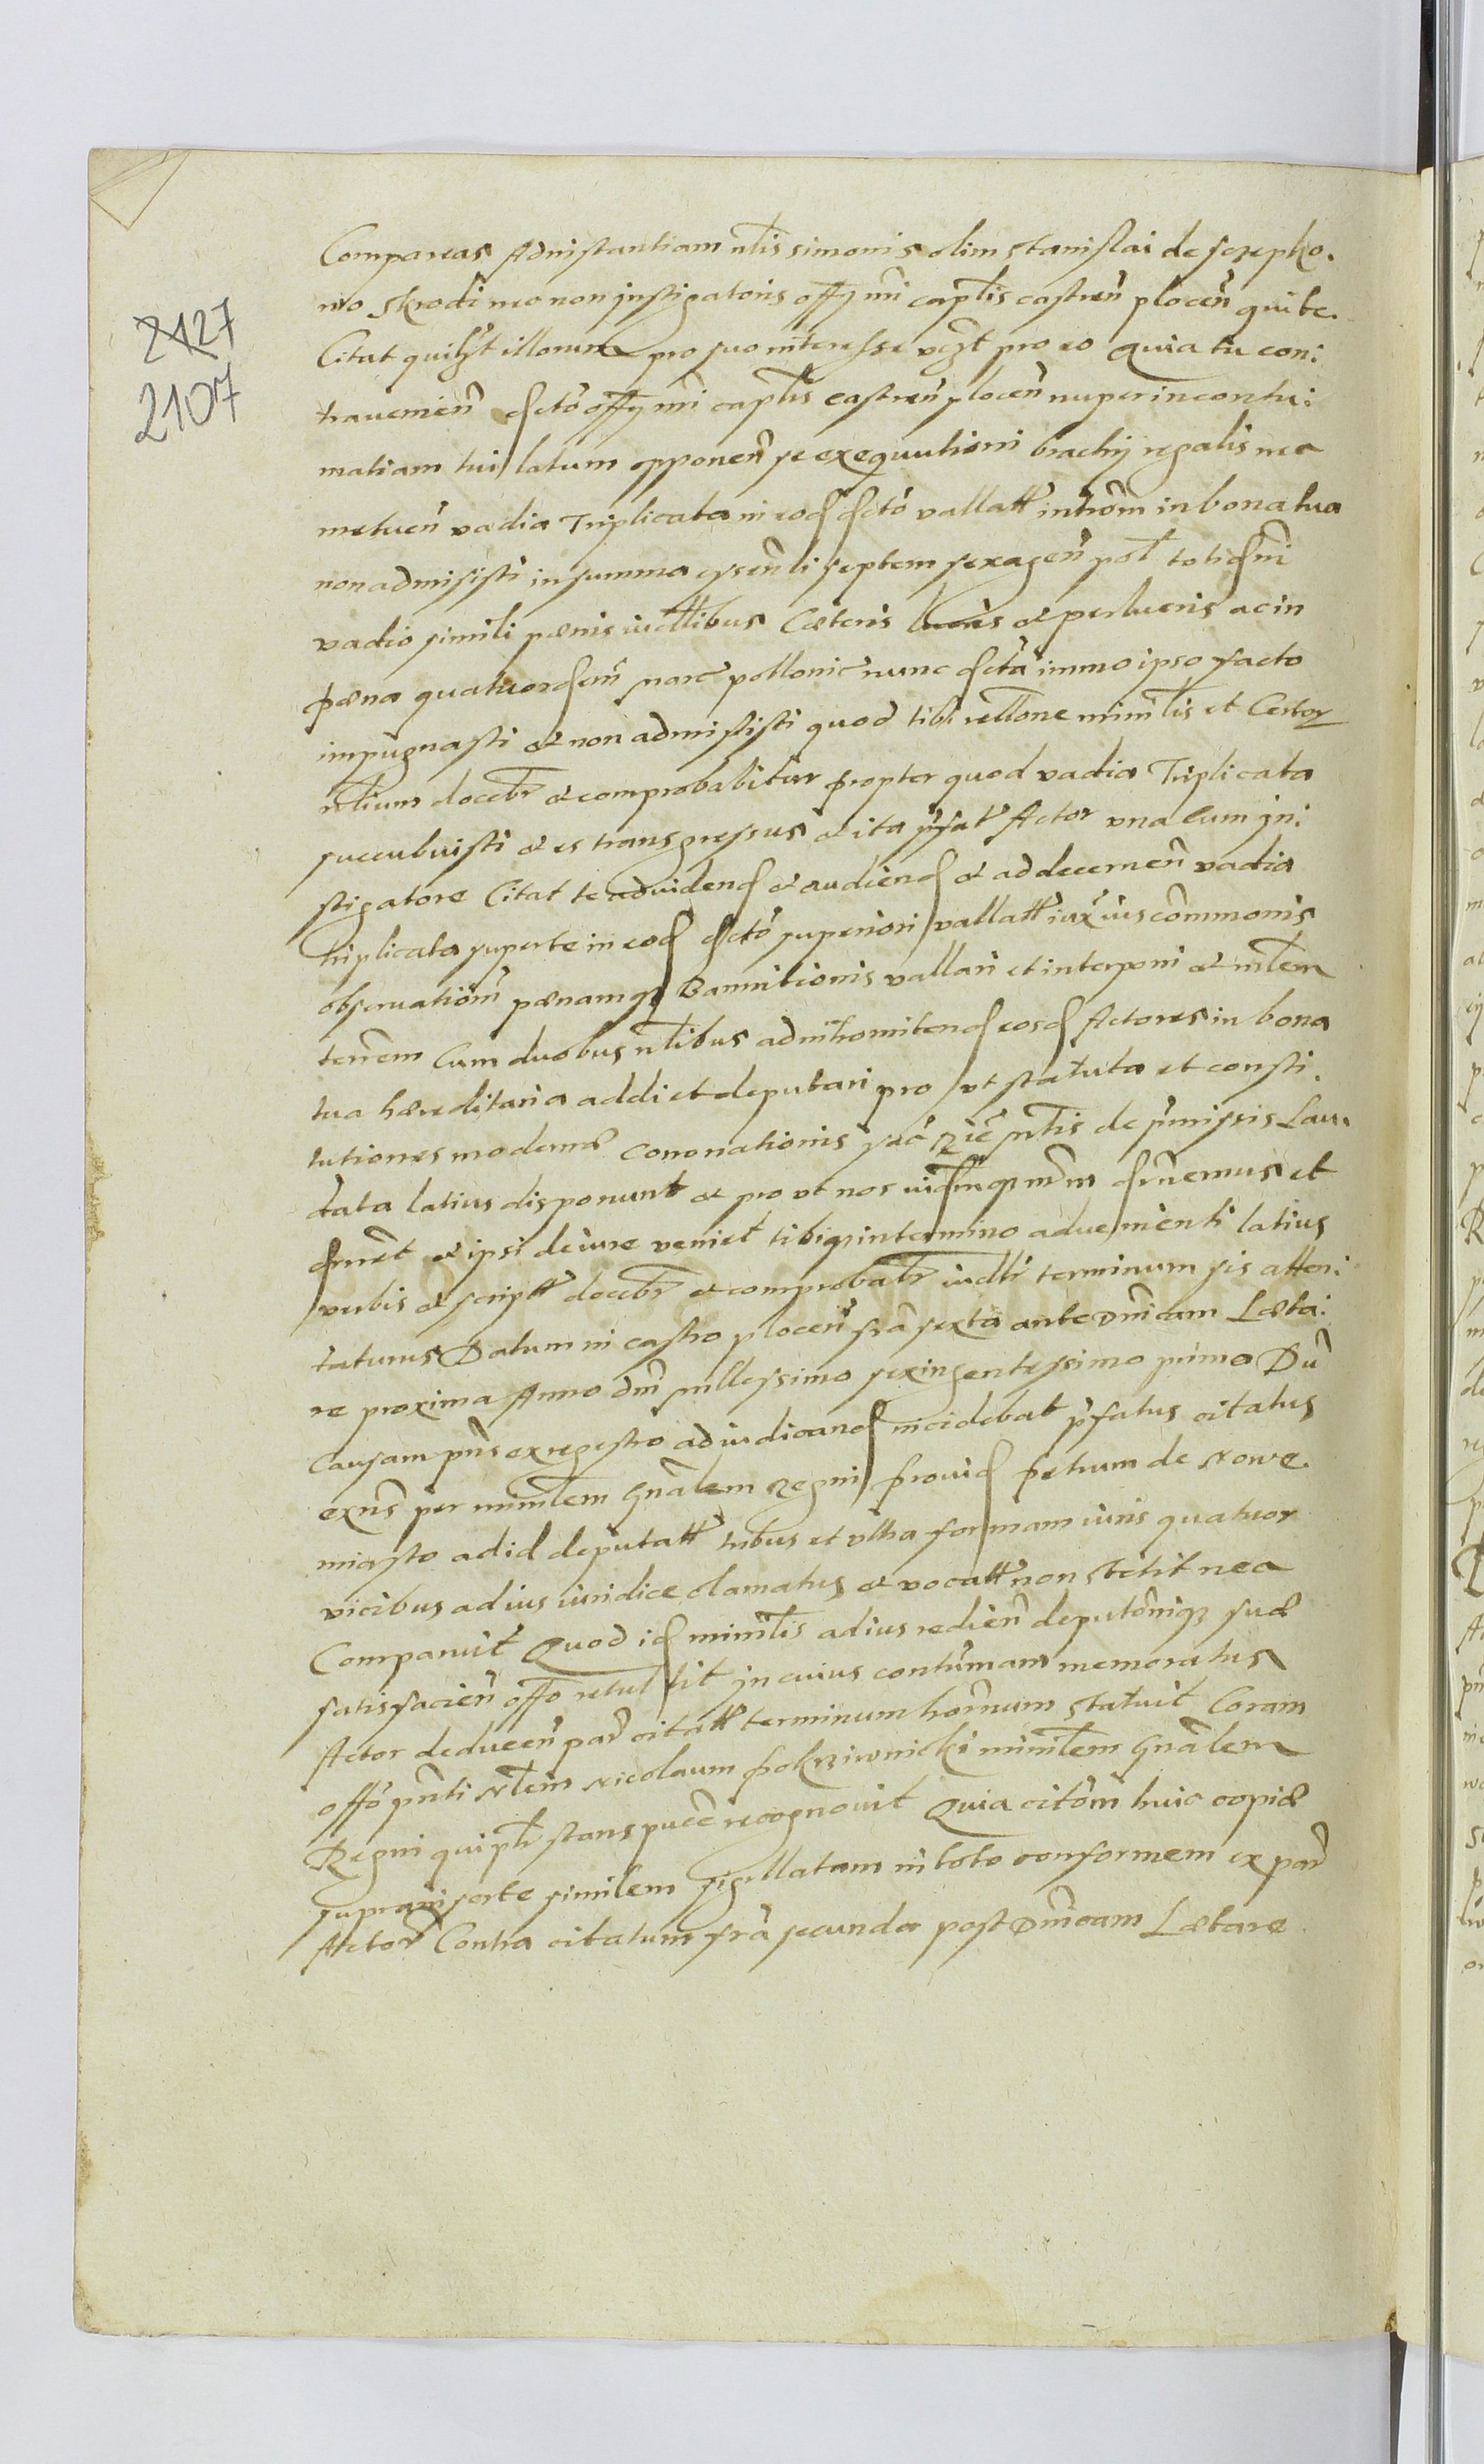 2127
2107
Compareas Ad instantiam nłis simonis olim stanislai de szrepko.
wo skrodi nec non jnstigatoris offy nri capłis castreñ ploceñ qui te.
Citat quilibt illorum pro suo interesse vczt pro eo quia tu con:
traveniens dcto offy nri capłis castreñ ploceñ nuper in contu:
matiam tui latum opponeñ se exequutioni brachij regalis nec
metueñ vadia Triplicata in eod dcto vallatt introm in bona tua
non admisisti in summa septem sexageñ pol totidm
vadio simili pænis iudłibus Cæteris lucris et perlucris ac in
pæna quatuordcm marc pollonic nunc dcta immo ipso facto
impugnasti et non admisisti quod tibi rellone minłis et Certor
nłium docebr et comprobabitur propter quod vadia Triplicata
succubuisti et es transgressus et ita pfat Actor una cum jn:
stigatore Citat te ad videnđ et audienđ et ad decerneñ vadia
triplicata super te in eod dcto superiori vallatt iux ius commonis
observationm pænamq Bannitionis vallari et interponi et mnłem
terrem Cum duobus nłibus ad intromitenđ eosđ Actores in bona
tua hæreditaria addi et deputari pro ut statuta et consti.
tutiones modernæ coronationis sræ Rie młtis de pmissis Lau.
data latius disponunt et pro ut nos drnemus et
drnet et ipsi de iure veniet tibiq in termino advenienti latius
verbis et scriptt docebr et comprobabr iudłr terminum sis atten:
taturus Datum in castro ploceñ fra sexta ante dnicam Læta:
re proxima Anno dni millessimo sexingentessimo primo Dũ
causam pñs ex regestro ad iudicanđ incidebat pfatus citatus
exñs per minłem gnalem Regni provid petrum de Nowe.
miasto ad id deputatt tribus et ultra formam iuris quatuor
vicibus ad ius iuridice clamatus et vocatt non stetit nec
Comparuit Quod id minłis ad ius redieñ deputoniq suæ
satisfacieñ offo retullit jn cuius contumam memoratus
Actor deduceñ par citatt terminum hornum statuit Coram
offo pnti Nłem Nicolaum Pokrziwnicki minłem gnalem
Regni qui ptr stans puce recognovit Quia citom huic copiæ
suprainserte similem sigillatam in toto conformem ex par
Actor Contra citatum fra secunda post dnicam Lætare